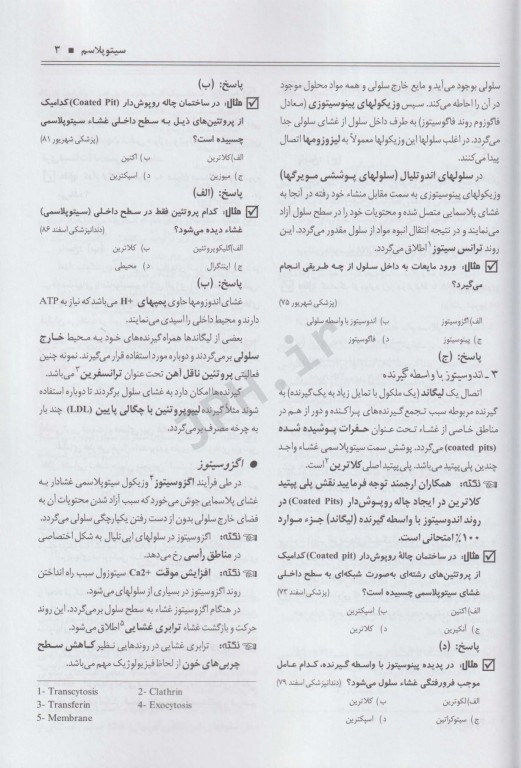 سیتوپلاسم ■ ۳
سلولی بوجود می‌آید و مایع خارج سلولی و همه مواد محلول موجود
در آن را احاطه می‌کند. سپس وزیکولهای پینوسیتوزی (معادل
فاگوزوم روند فاگوسیتوز) به طرف داخل سلول از غشای سلولی جدا
می‌گردد. در اغلب سلولها این وزیکولها معمولاً به لیزوزومها اتصال
پیدا می‌کنند.
در سلولهای اندوتلیال (سلولهای پوششی مویرگها)
وزیکولهای پینوسیتوزی به سمت مقابل منشاء خود رفته در آنجا به
غشای پلاسمایی متصل شده و محتویات خود را در سطح سلول آزاد
می‌نمایند و در نتیجه انتقال انبوه مواد از سلول مقدور می‌گردد. این
روند ترانس سیتوز۱ اطلاق می‌گردد.
مثال: ورود مایعات به داخل سلول از چه طریقی انجام
می‌گیرد؟
(پزشکی شهریور ۷۵)
الف) اگزوسیتوز ب) اندوسیتوز با واسطه سلولی
ج) پینوسیتوز د) فاگوسیتوز
پاسخ: (ج)
۳ـ اندوسیتوز با واسطه گیرنده
اتصال یک لیگاند (یک ملکول با تمایل زیاد به یک گیرنده) به
گیرنده مربوطه سبب تجمع گیرنده‌های پراکنده و دور از هم در
مناطق خاصی از غشاء تحت عنوان حفرات پوشیده شده
(coated pits) می‌گردد. پوشش سمت سیتوپلاسمی غشاء واجد
چندین پلی‌پپتید می‌باشد. پلی‌پپتید اصلی کلاترین۲ است.
نکته: همکاران ارجمند توجه فرمایید نقش پلی پپتید
کلاترین در ایجاد چاله روپوش‌دار (Coated Pits) در
روند اندوسیتوز با واسطه گیرنده (لیگاند) جزء موارد
۱۰۰٪ امتحانی است.
مثال: در ساختمان چالهٔ روپوش‌دار (Coated pit) کدامیک
از پروتئین‌های رشته‌ای به‌صورت شبکه‌ای به سطح داخلی
غشای سیتوپلاسمی چسبیده است؟ (پزشکی اسفند ۷۳)
الف) اکتین ب) اسپکترین
ج) آنکیرین د) کلاترین
پاسخ: (د)
مثال: در پدیده پینوسیتوز با واسطه گیرنده، کدام عامل
موجب فرورفتگی غشاء سلول می‌شود؟ (دندانپزشکی اسفند ۷۹)
الف) لکوترین ب) کلاترین
ج) سیتوکراتین د) اسپکترین
پاسخ: (ب)
مثال: در ساختمان چاله روپوش‌دار (Coated Pit) کدامیک
از پروتئین‌های ذیل به سطح داخلی غشاء سیتوپلاسمی
چسبیده است؟ (پزشکی شهریور ۸۱)
الف) کلاترین ب) آکتین
ج) میوزین د) اسپکترین
پاسخ: (الف)
مثال: کدام پروتئین فقط در سطح داخلی (سیتوپلاسمی)
غشاء دیده می‌شود؟ (دندانپزشکی اسفند ۸۶)
الف) گلیکوپروتئین ب) کلاترین
ج) اینتگرال د) محیطی
پاسخ: (ب)
غشای اندوزومها حاوی پمپهای H+ می‌باشد که نیاز به ATP
دارند و محیط داخلی را اسیدی می‌نمایند.
بعضی از لیگاندها همراه گیرنده‌های خود به محیط خارج
سلولی برمی‌گردند و دوباره مورد استفاده قرار می‌گیرند. نمونه چنین
فعالیتی پروتئین ناقل آهن تحت عنوان ترانسفرین۳ می‌باشد.
گیرنده‌ها امکان دارد به غشای سلول برگردند تا دوباره استفاده
شوند مثلاً گیرنده لیپوپروتئین با چگالی پایین (LDL) چند بار
به چرخه مصرف برمی‌گردد.
● اگزوسیتوز
در طی فرآیند اگزوسیتوز۴ وزیکول سیتوپلاسمی غشادار به
غشای پلاسمایی جوش می‌خورد که سبب آزاد شدن محتویات آن به
فضای خارج سلولی بدون از دست رفتن یکپارچگی سلولی می‌گردد.
نکته: اگزوسیتوز در سلولهای اپی‌تلیال به شکل اختصاصی
در مناطق رأسی رخ می‌دهد.
نکته: افزایش موقت Ca2+ سیتوزول سبب راه انداختن
روند اگزوسیتوز در بسیاری از سلولهای می‌شود.
در هنگام اگزوسیتوز غشاء به سطح سلول برمی‌گردد. این روند
حرکت و بازگشت غشاء ترابری غشایی۵ اطلاق می‌شود.
نکته: ترابری غشایی در روندهایی نظیر کاهش سطح
چربی‌های خون از لحاظ فیزیولوژیک مهم می‌باشد.
1- Transcytosis 2- Clathrin
3- Transferin 4- Exocytosis
5- Membrane